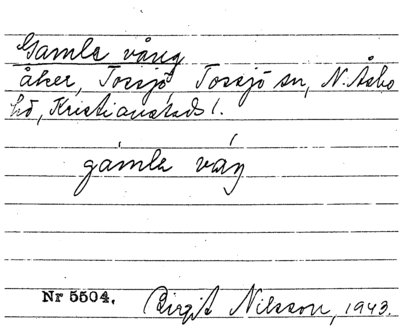 Gamla vång
åker, Torsjö, Torsjö sn, N. Åsbo
hd, Kristianstads l.
gámla váŋ
Nr 5504. Birgit Nilsson, 1943.